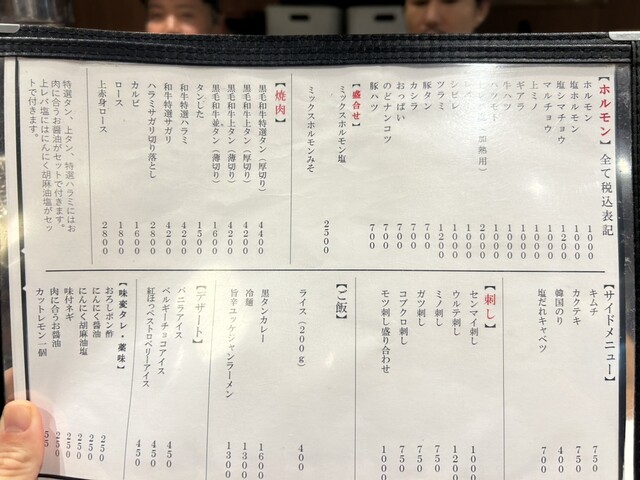 【ホルモン】全て税込表記
ホルモン 1000
塩ホルモン 1000
塩シマチョウ 1200
マルチョウ 1000
上ミノ 1000
ギアラ 1000
牛ハツ 1000
ハツモト 1000
加熱用) 2000
シビレ 1000
ツラミ 1200
豚タン 700
カシラ 700
おっぱい 700
のどナンコツ 700
豚ハツ 700
【盛合せ】
ミックスホルモン塩
ミックスホルモンみそ 2500
【焼肉】
黒毛和牛特選タン(厚切り) 4400
黒毛和牛上タン(厚切り) 4200
黒毛和牛上タン(薄切り) 4200
黒毛和牛並タン(薄切り) 1600
タンした 1500
和牛特選ハラミ 4200
和牛特選サガリ 4200
ハラミサガリ切り落とし 2800
カルビ 1600
ロース 1800
上赤身ロース 2800
特選タン、上タン、特選ハラミにはお
肉に合うお醤油がセットで付きます。
上レバ塩にはにんにく胡麻油塩がセッ
トで付きます。
【サイドメニュー】
キムチ 750
カクテキ 750
韓国のり 400
塩だれキャベツ 700
【刺し】
センマイ刺し 1000
ウルテ刺し 1200
ミノ刺し 750
ガツ刺し 750
コブクロ刺し 750
モツ刺し盛り合わせ 1000
【ご飯】
ライス(200g) 400
黒タンカレー 1600
冷麺 1300
旨辛ユッケジャンラーメン 1300
【デザート】
バニラアイス 450
ベルギーチョコアイス 450
紅ほっぺストロベリーアイス 450
【味変タレ・薬味】
おろしポン酢 250
にんにく醤油 250
にんにく胡麻油塩 250
味付ネギ 250
肉に合うお醤油 250
カットレモン一個 55